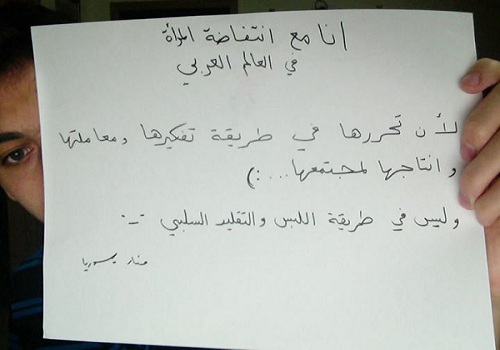 انا مع انتفاضة المرأة
في العالم العربي
لأن تحررها في طريقة تفكيرها ومعاملتها
وانتاجها لمجتمعها....:)
وليس في طريقة اللبس والتقليد السلبي -.-
منار - سوريا